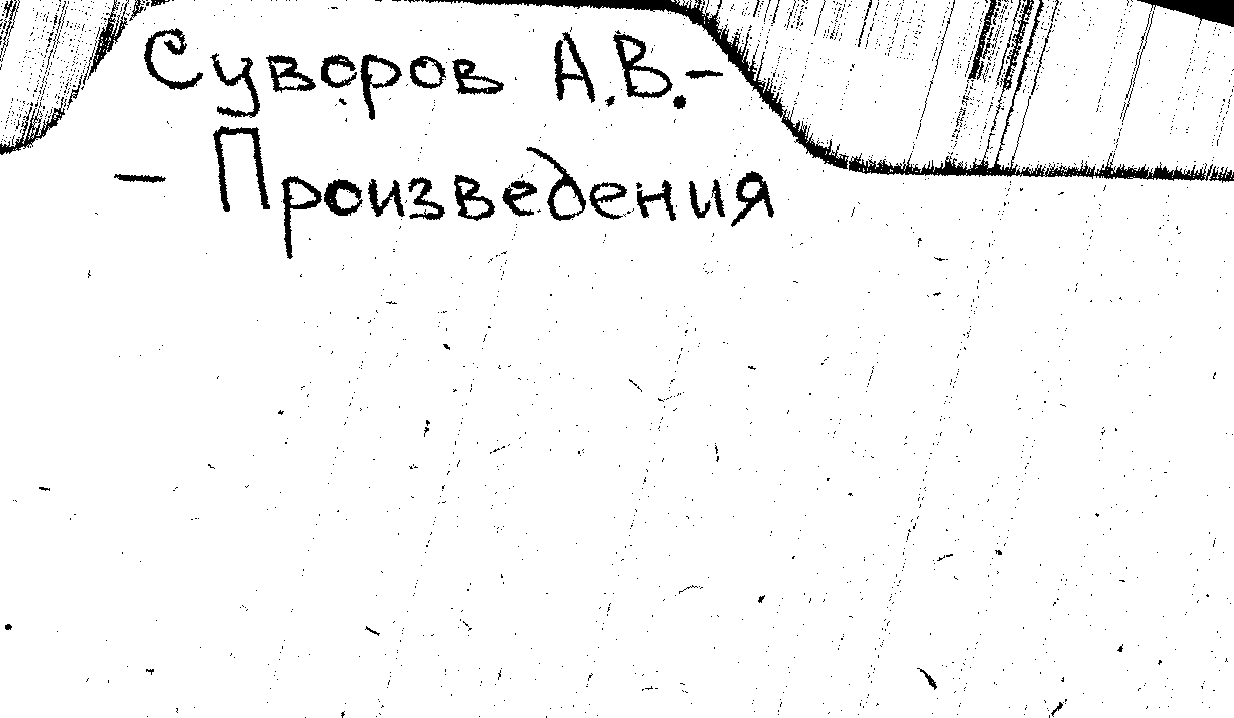 Суворов А.В.-
- Произведения